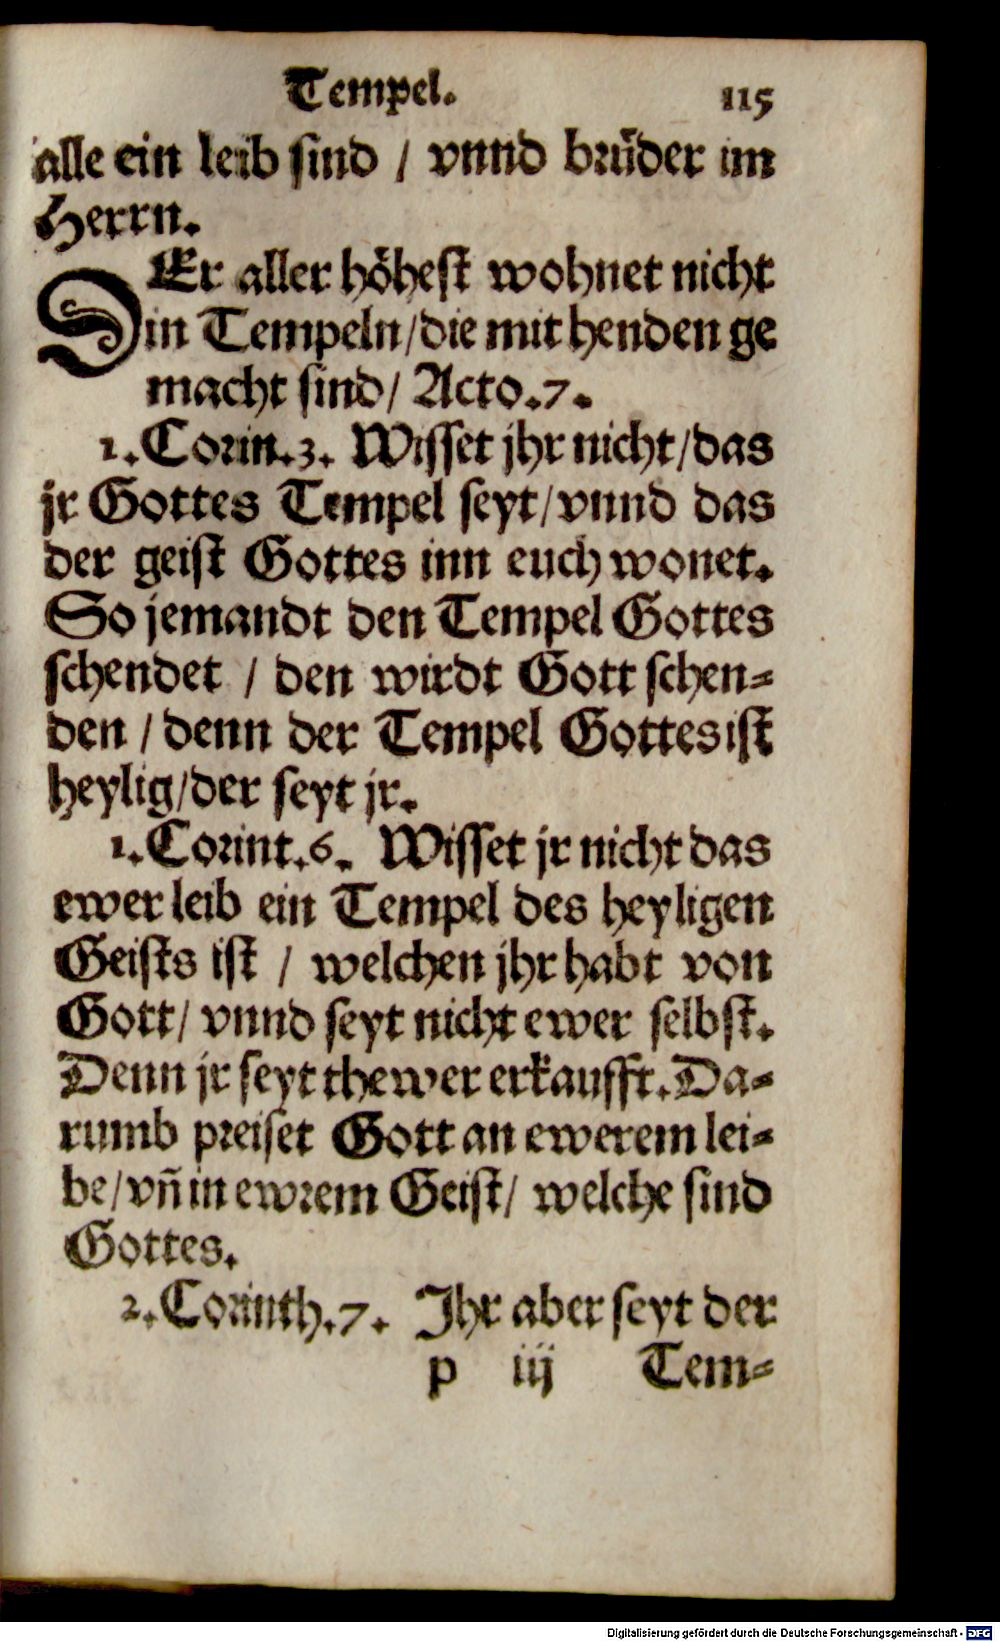 Tempel. 115
alle ein leib sind / vnnd brüder im
Herrn.
DEr aller höhest wohnet nicht
in Tempeln/die mit henden ge
macht sind/ Acto.7.
1.Corin.3. Wisset jhr nicht/das
jr Gottes Tempel seyt/vnnd das
der geist Gottes inn euch wonet.
So jemandt den Tempel Gottes
schendet / den wirdt Gott schen⸗
den / denn der Tempel Gottes ist
heylig/der seyt jr.
1.Corint.6. Wisset jr nicht das
ewer leib ein Tempel des heyligen
Geists ist / welchen jhr habt von
Gott/ vnnd seyt nicht ewer selbst.
Denn jr seyt thewer erkaufft. Da⸗
rumb preiset Gott an ewerem lei⸗
be/vñ in ewrem Geist/ welche sind
Gottes.
2.Corinth.7. Jhr aber seyt der
p iij Tem⸗
Digitalisierung gefördert durch die Deutsche Forschungsgemeinschaft - DFG